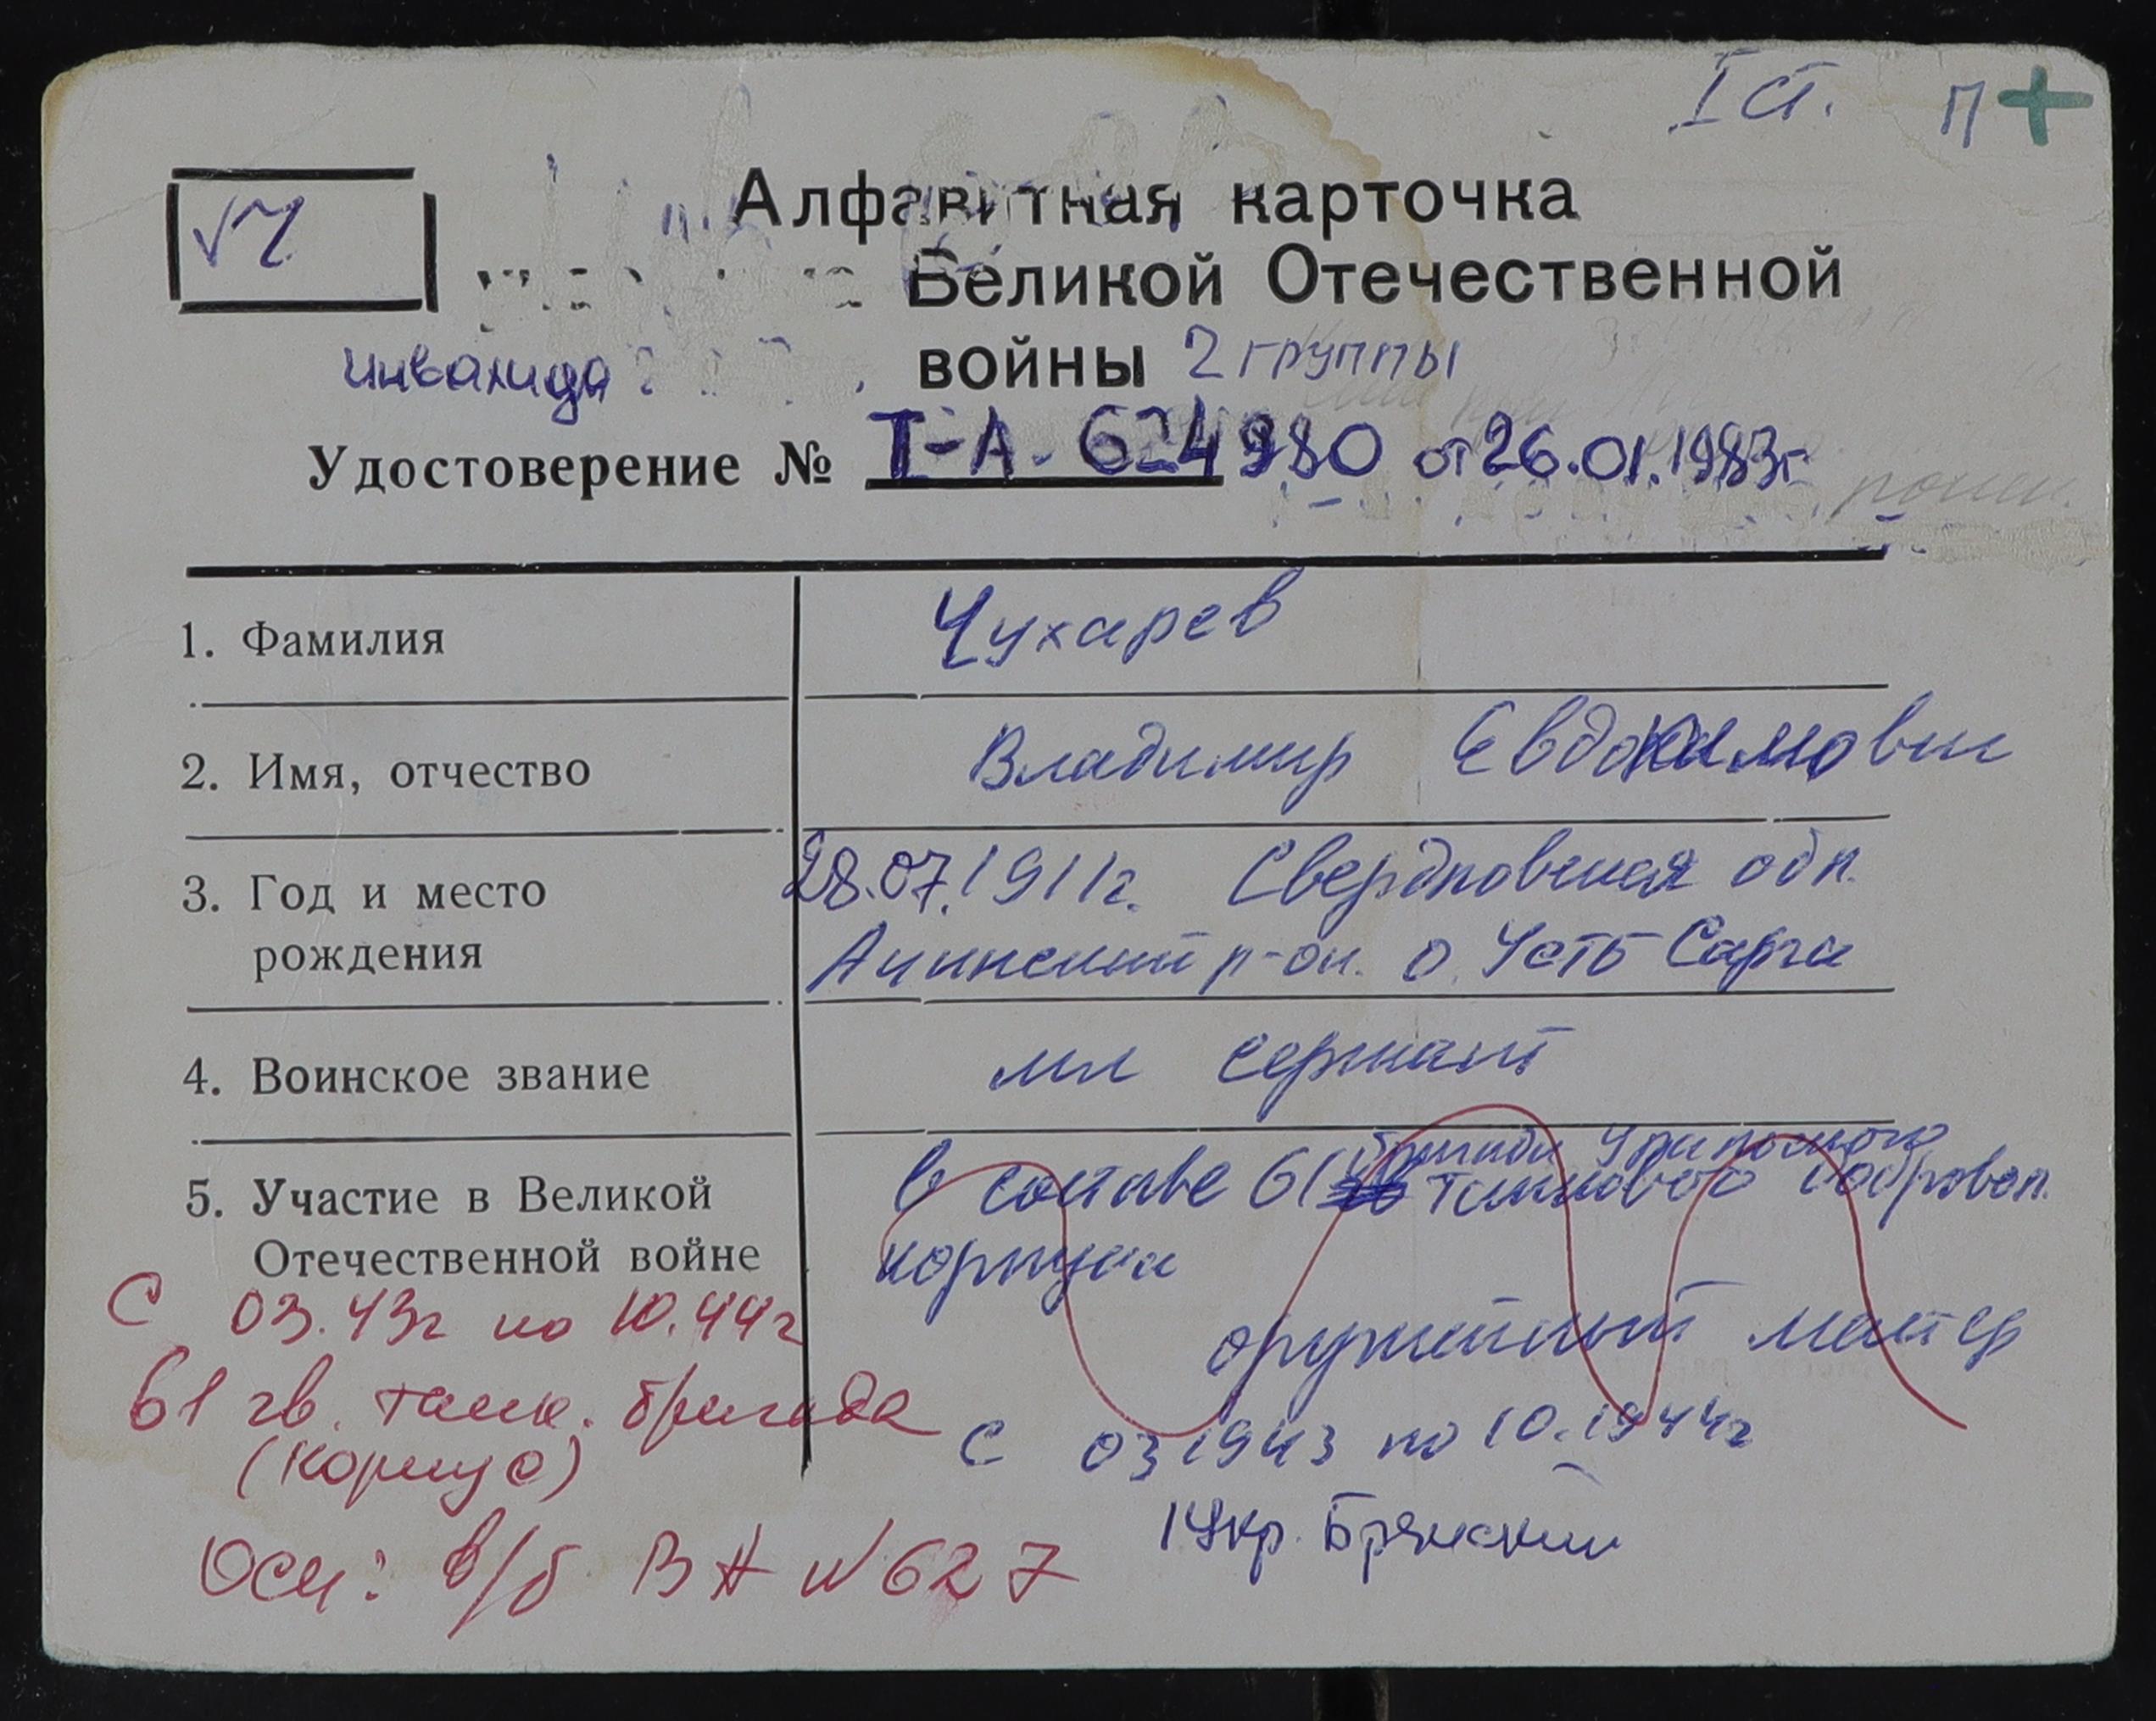 I ст. П +
√ Ч
Алфавитная карточка
Великой Отечественной
инвалида войны 2 группы
Удостоверение № Т-А. 624980 от 26.01.1983г
1. Фамилия Чухарев
2. Имя, отчество Владимир Евдокимович
3. Год и место рождения 28.07.1911г. Свердловская обл.
Ачинский р-он. д. Усть Сарга
4. Воинское звание мл сержант
5. Участие в Великой Отечественной войне
в составе 61 бригады Уральского
танкового Добровол.
корпуса
оружейный мастер
с 03 1943 по 10.1944г
1 Укр. Брянский
С 03.43г по 10.44г
61 гв. танк. бригада
(корпус)
Осн: в/б ВН №627